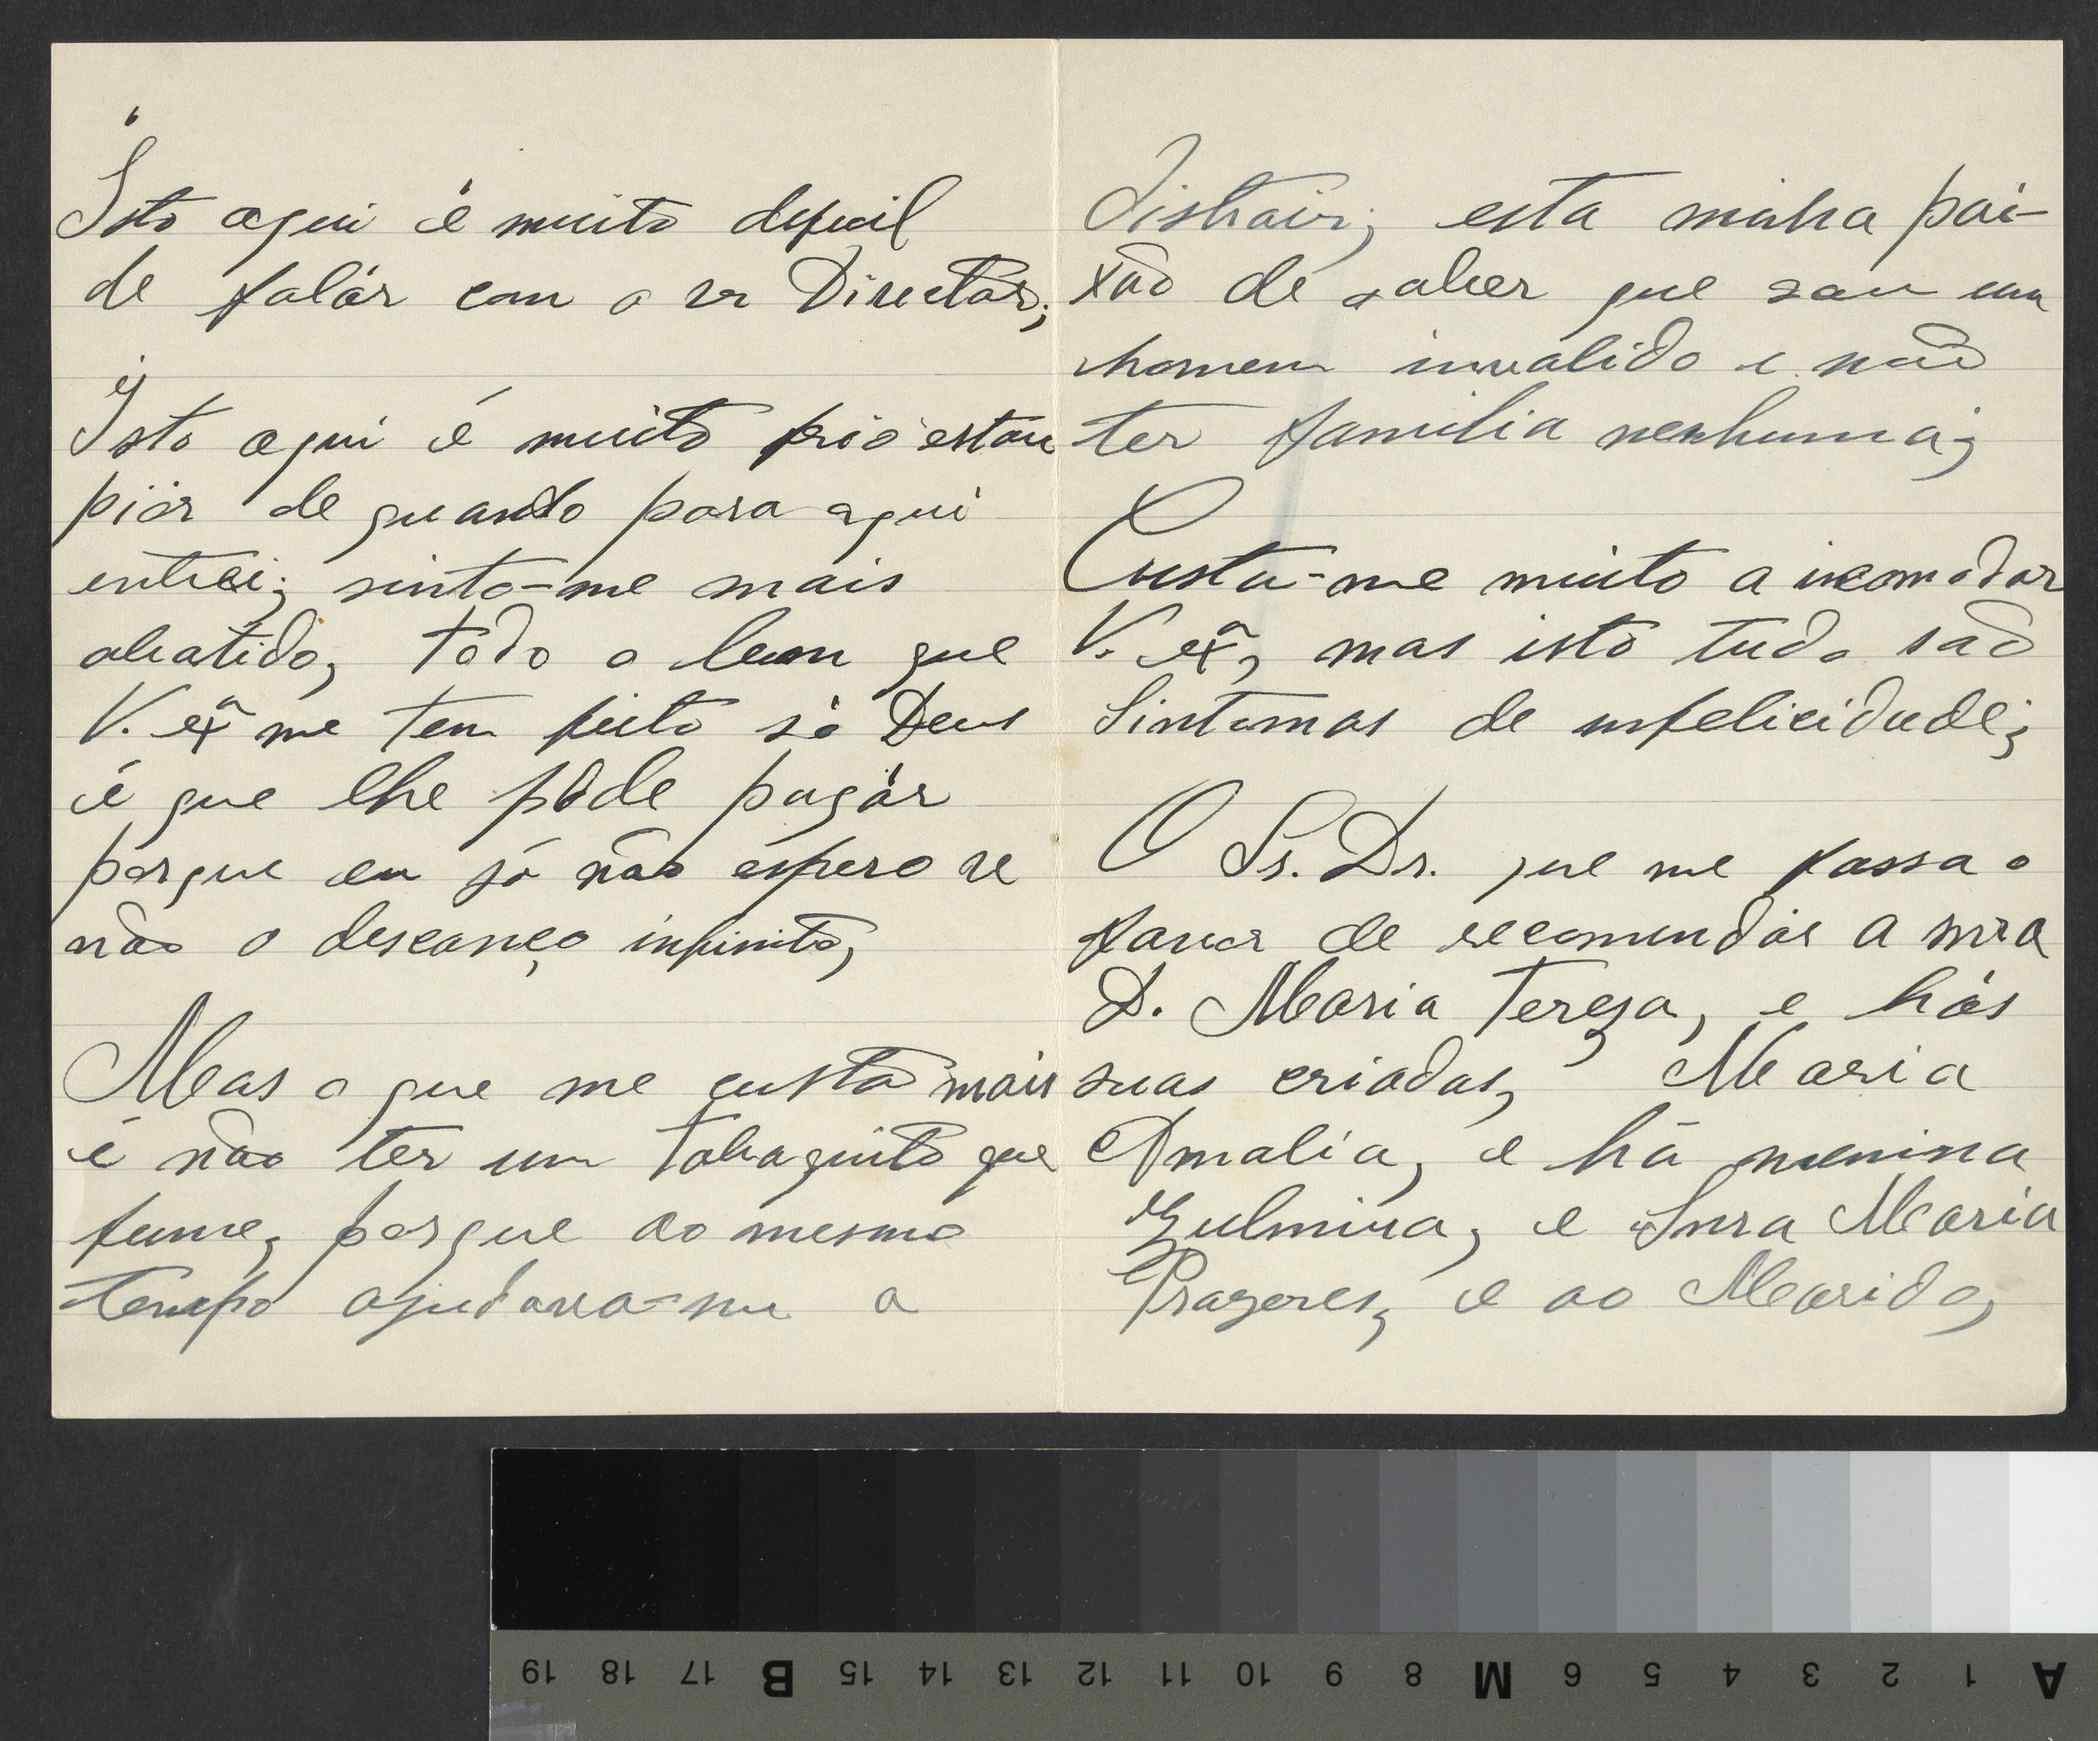 Isto aqui é muito deficil
de falár com o sr Directôr;
Isto aqui é muito frio estou
piór de quando para aqui
entrei; sinto-me mais
abatido, todo o bem que
V. exª me tem feito só Deus
é que lhe póde pagár
porque eu já não espero se
não o descanço infinito,
Mas o que me custa mais
é não ter um tabaquito que
fume, porque ao mesmo
tempo ajudava-me a
distrair; esta minha pai-
xão de saber que sou um
homem invalido e não
ter familia nenhuma;
Custa-me muito a incomodar
V. exª, mas isto tudo são
Sintomas de infelicidade;
O Sr. Dr. que me fassa o
favor de recomendár a snra
D. Maria Tereza, e hás
suas criadas, Maria
Amalia, e há menina
Gulmira, e Snra Maria
Prazeres, e ao Marido,
19 18 17 B 15 14 13 12 11 10 9 8 M 6 5 4 3 2 1 A